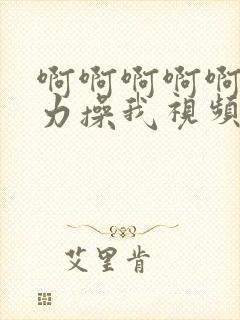 啊啊啊啊啊
力操我視頻
艾里肯